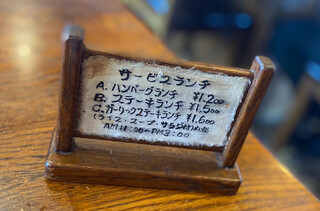 サービスランチ
A. ハンバーグランチ ¥1.200
B. ステーキランチ ¥1.500
C. ガーリックステーキランチ ¥1.600
(ライス・スープ・サラダ付)
AM11:00~PM3:00